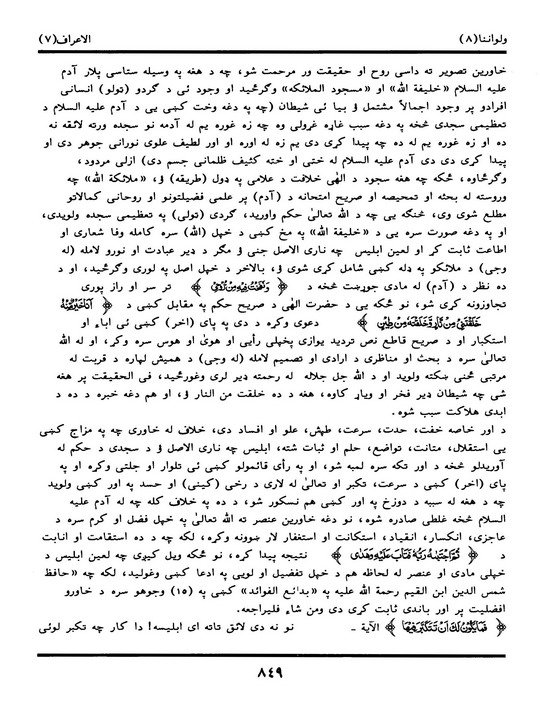 ولواننا(٨) الاعراف(٧)
خاورين تصوير ته داسې روح او حقيقت ور مرحمت شو، چه د هغه په وسيله ستاسې پلار آدم
عليه السلام «خليفة الله» او «مسجود الملائكه» وګرځيد او وجود ئې د ګردو (تولو) انسانى
افرادو پر وجود اجمالاً مشتمل ؤ بيا ئې شيطان (چه په دغه وخت كښى يې د آدم عليه السلام د
تعظيمى سجدې څخه په دغه سبب غاړه غړولى وه چه زه غوره يم له آدمه نو سجده ورته لائقه نه
ده او زه غوره يم له ده چه پيدا كړى دى يم زه له اوره او اور لطيف علوى نورانى جوهر دى او
پيدا كړى دى دى آدم عليه السلام له خټې او خټه كثيف ظلمانى جسم دى) ازلى مردود،
وګرځاوه، ځكه چه هغه سجود د الٰهى خلافت د علامې په ډول (طريقه) ؤ، «ملائكة الله» چه
وروسته له بحثه او تمحيصه او صريح امتحانه د (آدم) پر علمى فضيلتونو او روحانى كمالاتو
مطلع شوى وى، څنګه يى چه د الله تعالىٰ حكم واوريد، ګردى (تولى) په تعظيمى سجده ولويدى،
او په دغه صورت سره يې د «خليفة الله» په مخ كښى د خپل (الله) سره كامله وفا شعارى او
اطاعت ثابت كړ او لعين ابليس چه نارى الاصل جنى ؤ مګر د ډير عبادت او نورو لامله (له
وجې) د ملائكو په ډله كښى شامل كړى شوى ؤ، بالاخر د خپل اصل په لورى وګرځيد، او د
ده نظر د (آدم) له مادى جوړښت څخه د ﴿ وَنَفَخْتُ فِيْهِ مِنْ رُّوْحِيْ ﴾ تر سر او راز پورى
تجاوزونه كړى شو، نو ځكه يې د حضرت الٰهى د صريح حكم په مقابل كښى د ﴿ اَنَا خَيْرٌ مِّنْهُ
خَلَقْتَنِيْ مِنْ نَّارٍ وَّخَلَقْتَهٗ مِنْ طِيْنٍ ﴾ دعوى وكړه د دى په پاى (اخر) كښى ئې اباء او
استكبار او د صريح قاطع نص ترديد يوازى پخپلى رأيى او هوىٰ او هوس سره وكړ، او له الله
تعالىٰ سره د بحث او مناظرى د ارادى او تصميم لامله (له وجې) د هميش لپاره د قربت له
مرتبى څخه ښكته ولويد او د الله جل جلاله له رحمته ډير لرى وغورځيد، فى الحقيقت پر هغه
شى چه شيطان ډير فخر او وياړ كاوه، هغه د ده خلقت من النار ؤ، او هم دغه خبره د ده د
ابدى هلاكت سبب شوه.
د اور خاصه خفت، حدت، سرعت، طيش، علو او افساد دى، خلاف له خاورى چه په مزاج كښى
يى استقلال، متانت، تواضع، حلم او ثبات شته، ابليس چه نارى الاصل ؤ د سجدى د حكم له
آوريدلو څخه د اور تكه سره لمبه شو، او په رأى قائمولو كښى ئې تلوار او جلتى وكړه او په
پاى (اخر) كښى د سرعت، تكبر او تعالىٰ له لارى د رخى (كينې) او حسد په اور كښى ولويد
چه د هغه له سببه د دوزخ په اور كښى هم نسكور شو، د ده په خلاف كله چه له آدم عليه
السلام څخه غلطى صادره شوه، نو دغه خاورين عنصر ته الله تعالىٰ په خپل فضل او كرم سره د
عاجزى، انكسار، انقياد، استكانت او استغفار لار ښوونه وكړه، لكه چه د ده استقامت او انابت
د ﴿ ثُمَّ اجْتَبٰهُ رَبُّهٗ فَتَابَ عَلَيْهِ وَهَدٰى ﴾ نتيجه پيدا كړه، نو ځكه ويل كيږى چه لعين ابليس د
خپلى مادى او عنصر له لحاظه هم د خپل تفضيل او لويى په ادعا كښى وغوليد، لكه چه «حافظ
شمس الدين ابن القيم رحمة الله عليه په «بدائع الفوائد» كښى په (١٥) وجوهو سره د خاورو
افضليت پر اور باندى ثابت كړى دى ومن شاء فليراجعه.
﴿ فَمَا يَكُوْنُ لَكَ اَنْ تَتَكَبَّرَ فِيْهَا ﴾ الآية ـ نو نه دى لائق تاته اى ابليسه! دا كار چه تكبر لوئى
٨٤٩